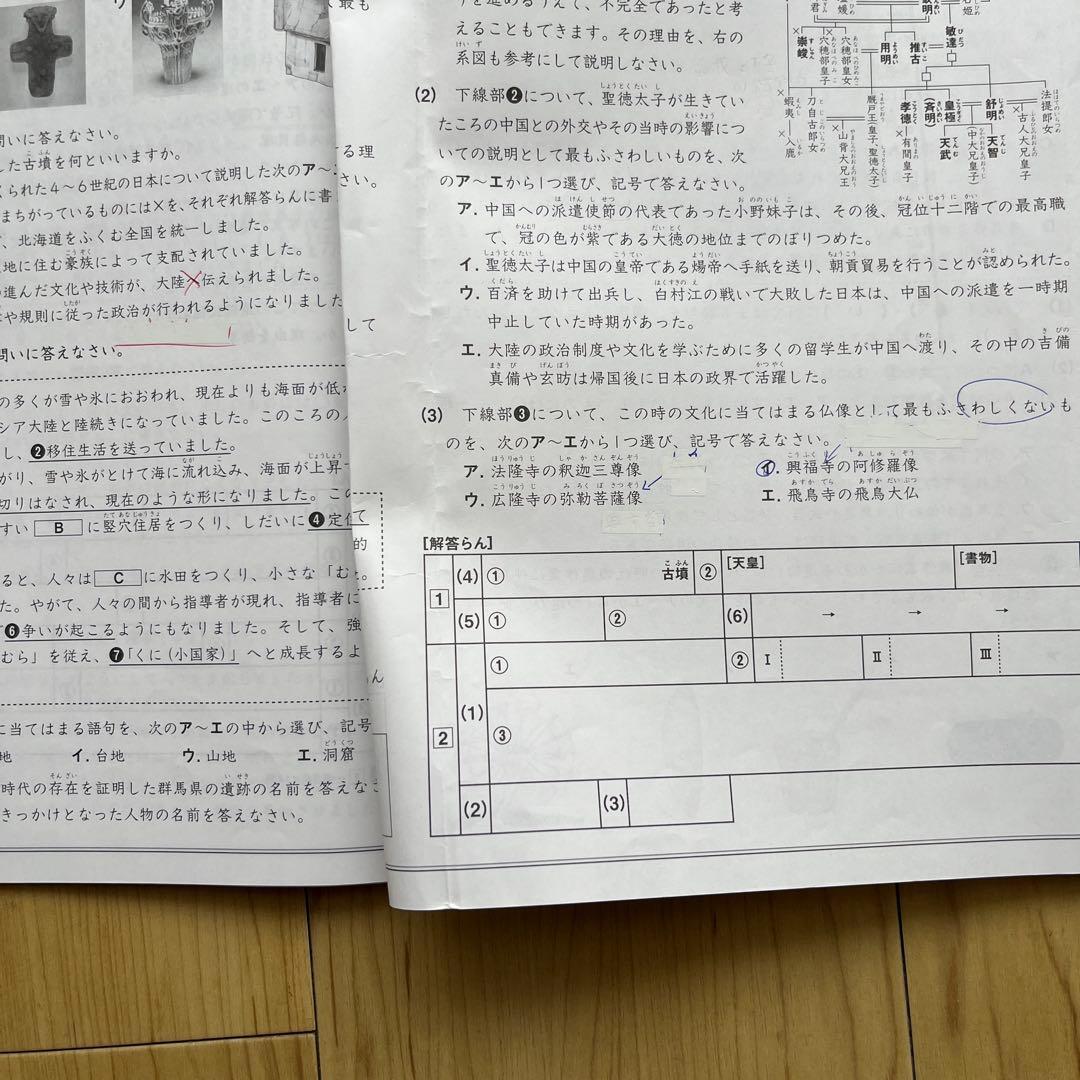 問いに答えなさい。
した古墳を何といいますか。
くられた4～6世紀の日本について説明した次のア～
まちがっているものには×を、それぞれ解答らんに書
、北海道をふくむ全国を統一しました。
地に住む豪族によって支配されていました。
進んだ文化や技術が、大陸 伝えられました。
や規則に従った政治が行われるようになりました
問いに答えなさい。
の多くが雪や氷におおわれ、現在よりも海面が低
シア大陸と陸続きになっていました。このころの
し、❷移住生活を送っていました。
がり、雪や氷がとけて海に流れ込み、海面が上昇
切りはなされ、現在のような形になりました。この
すい B に竪穴住居をつくり、しだいに❹定住
ると、人々は C に水田をつくり、小さな「む
た。やがて、人々の間から指導者が現れ、指導者に
❻争いが起こるようにもなりました。そして、強
むら」を従え、❼「くに（小国家）」へと成長するよ
に当てはまる語句を、次のア～エの中から選び、記号
地 イ. 台地 ウ. 山地 エ. 洞窟
時代の存在を証明した群馬県の遺跡の名前を答えなさ
きっかけとなった人物の名前を答えなさい。
る理
さい。
して
て
的
。
ん
を進めるうえで、不完全であったと考
えることもできます。その理由を、右の
系図も参考にして説明しなさい。
(2) 下線部❷について、聖徳太子が生きてい
たころの中国との外交やその当時の影響につ
いての説明として最もふさわしいものを、次
のア～エから1つ選び、記号で答えなさい。
ア. 中国への派遣使節の代表であった小野妹子は、その後、冠位十二階での最高職
で、冠の色が紫である大徳の地位までのぼりつめた。
イ. 聖徳太子は中国の皇帝である煬帝へ手紙を送り、朝貢貿易を行うことが認められた。
ウ. 百済を助けて出兵し、白村江の戦いで大敗した日本は、中国への派遣を一時期
中止していた時期があった。
エ. 大陸の政治制度や文化を学ぶために多くの留学生が中国へ渡り、その中の吉備
真備や玄昉は帰国後に日本の政界で活躍した。
(3) 下線部❸について、この時の文化に当てはまる仏像として最もふさわしくないも
のを、次のア～エから1つ選び、記号で答えなさい。
ア. 法隆寺の釈迦三尊像 イ. 興福寺の阿修羅像
ウ. 広隆寺の弥勒菩薩像 エ. 飛鳥寺の飛鳥大仏
敏達
崇峻 穴穂部皇子 穴穂部皇女 用明 推古
蝦夷 刀自古郎女 厩戸王(皇子、聖徳太子) 孝徳 皇極(斉明) 舒明 法提郎女
入鹿 山背大兄王 有間皇子 天武 (中大兄皇子)天智 古人大兄皇子
[解答らん]
1 (4) ① 古墳 ② [天皇] [書物]
(5) ① ② (6) → → →
2 (1) ① ② Ⅰ Ⅱ Ⅲ
③
(2) (3)